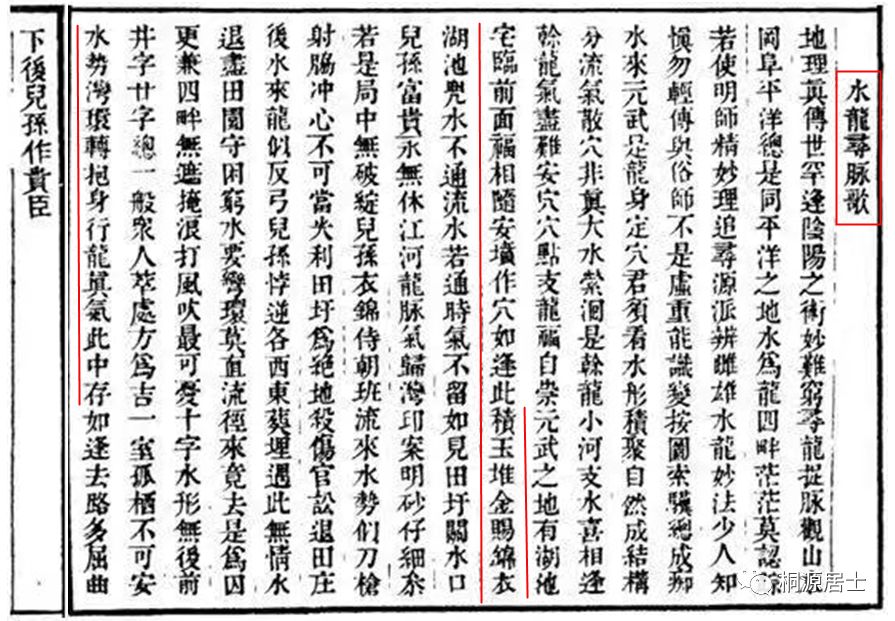 水龍尋脉歌
地理眞傳世罕逢陰陽之術妙難窮尋龍捉脉觀山水
岡阜平洋總是同平洋之地水爲龍四畔茫茫莫認踪
若使明師精妙理追尋源派辨雌雄水龍妙法少人知
愼勿輕傳與俗師不是虛重能識變按圖索驥總成痴
水來元武是龍身定穴君須看水形積聚自然成結構
分流氣散穴非眞大水縈洄是榦龍小河支水喜相逢
榦龍氣盡難安穴穴點支龍福自崇元武之地有湖池
宅臨前面福相隨安墳作穴如逢此積玉堆金賜錦衣
湖池兜水不通流水若通時氣不留如見田圩關水口
兒孫富貴永無休江河龍脉氣歸灣印案明砂仔細叅
若是局中無破綻兒孫衣錦侍朝班流來水勢們刀槍
射脇冲心不可當失利田圩爲絶地殺傷官訟退田庄
後水來龍似反弓兒孫悖逆各西東葬埋遇此無情水
退盡田園守困窮水要彎環莫直流徑來竟去是爲囚
更兼四畔無遮掩浪打風吹最可憂十字水形無後前
井字廿字總一般衆人萃處方爲吉一室孤栖不可安
水勢灣環轉抱身行龍眞氣此中存如逢去路多屈曲
下後兒孫作貴臣
桐源居士